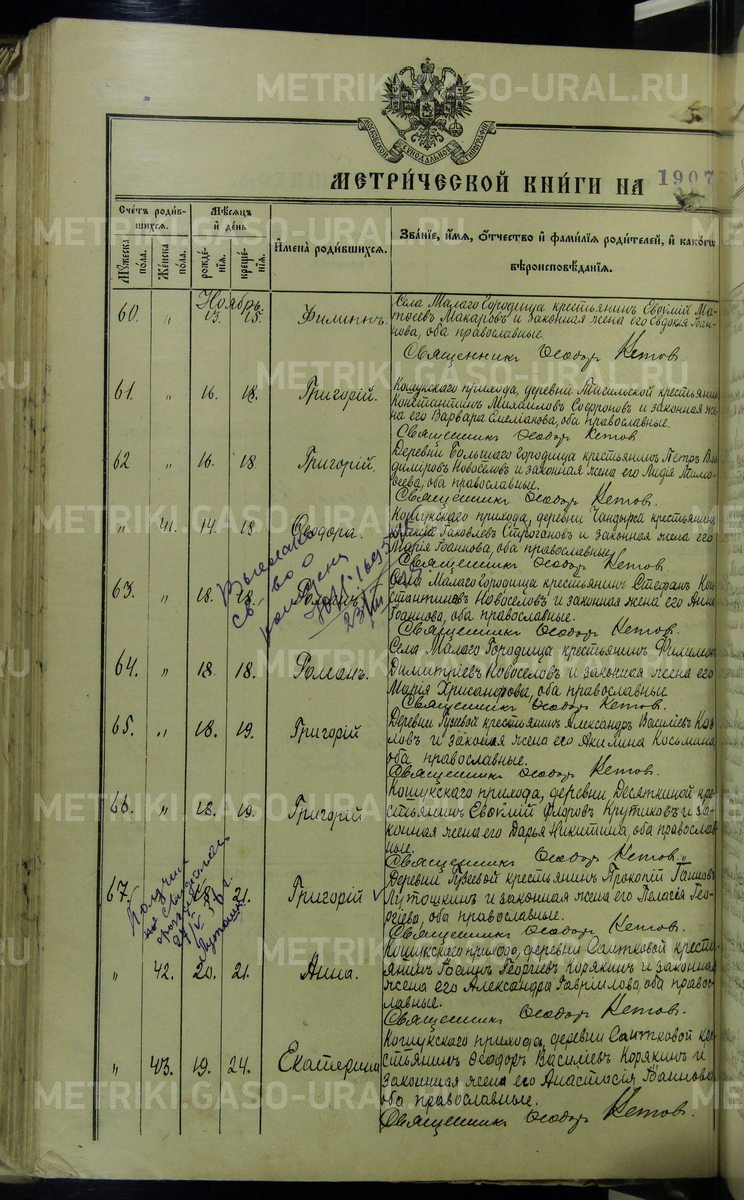 METRIKI.GASO-URAL.RU
МОСКОВСКОЙ СѴНОДАЛЬНОЙ ТИПОГРАФІИ
МЕТРИ́ЧЕСКОЙ КНИ́ГИ НА 1907
Сче́тъ роди́вшихся.
Мѣсяцъ и҆ де́нь
И҆мена̀ роди́вшихся.
Зва́нїе, и҆́мя, ѻ҆́тчество и҆ фами́лїѧ роди́телей, и҆ како́гѡ
вѣроисповѣ́данїѧ.
Мꙋ́жеска по́ла.
Же́нска по́ла.
рожде́нїѧ.
креще́нїѧ.
Ноябрь.
60. " 13. 15. Филиппъ.
Села Малаго Городища крестьянинъ Евѳимій Ма-
тѳеевъ Макаровъ и законная жена его Евдокія Іоан-
нова, оба православные.
Священникъ Ѳеодоръ Кетовъ.
61. " 16. 18. Григорій.
Кошукскаго прихода, деревни Тагильской крестьянинъ
Константинъ Михаиловъ Софроновъ и законная же-
на его Варвара Емеліанова, оба православные.
Священникъ Ѳеодоръ Кетовъ
62 " 16 18 Григорій.
Деревни Большаго Городища крестьянинъ Петръ Вла-
димировъ Новоселовъ и законная жена его Лидія Тимо-
ѳеева, оба православные.
Священникъ Ѳеодоръ Кетовъ.
" 41. 14. 18. Ѳеодора.
Кошукскаго прихода, деревни Чандыри крестьянинъ
Іаковлевъ Строгановъ и законная жена его
Марія Іоаннова, оба православные.
Священникъ Ѳеодоръ Кетовъ.
63. " 18. 18. Романъ.
Села Малаго Городища крестьянинъ Стефанъ Кон-
стантиновъ Новоселовъ и законная жена его Анна
Іоаннова, оба православные.
Священникъ Ѳеодоръ Кетовъ.
64. " 18. 18. Романъ.
Села Малаго Городища крестьянинъ Филимонъ
Димитріевъ Новоселовъ и законная жена его
Марія Хрисанфова, оба православные
Священникъ Ѳеодоръ Кетовъ.
65. " 18. 19. Григорій
Деревни Гузеевой крестьянинъ Александръ Васильевъ Коз-
ловъ и законная жена его Акилина Косьмина,
оба православные.
Священникъ Ѳеодоръ Кетовъ.
66. " 18. 19. Григорій
Кошукскаго прихода, деревни Десяткиной кре-
стьянинъ Евѳимій Флоровъ Крутиковъ и за-
конная жена его Дарья Никитина, оба православ-
ные.
Священникъ Ѳеодоръ Кетовъ.
67. " 21. Григорій
Деревни Гузеевой крестьянинъ Прокопій Іоанновъ
Лутошкинъ и законная жена его Пелагія Геор-
гіева, оба православные.
Священникъ Ѳеодоръ Кетовъ.
" 42. 20. 21. Анна.
Кошукскаго прихода, деревни Саитковой кресть-
янинъ Іосифъ Георгіевъ Корякинъ и законная
жена его Александра Гавриилова, оба право-
славные.
Священникъ Ѳеодоръ Кетовъ.
" 43. 19. 24. Екатерина
Кошукскаго прихода, деревни Саитковой кре-
стьянинъ Ѳеодоръ Васильевъ Корякинъ и
законная жена его Анастасія Іоаннова
оба православные.
Священникъ Ѳеодоръ Кетовъ.